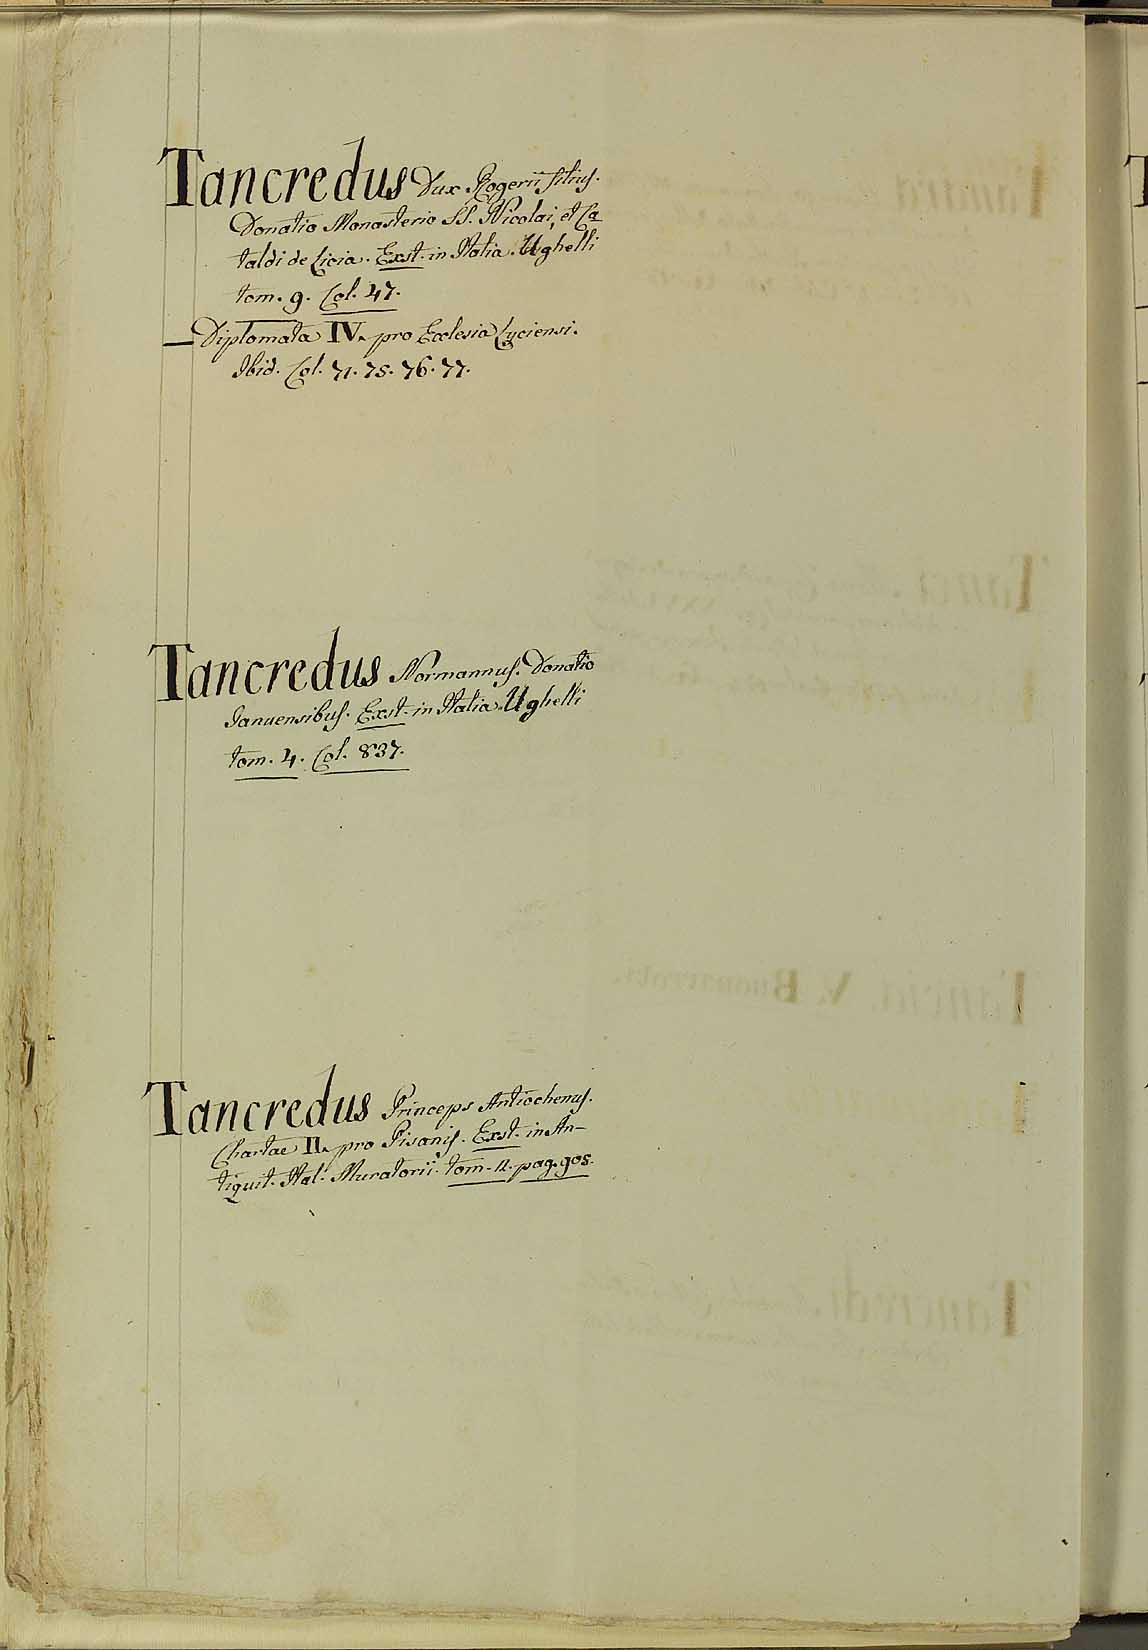 Tancredus Dux Rogerii filius.
Donatio Monasterio SS. Nicolai, et Ca
taldi de Licia. Exst. in Italia Ughelli
tom. 9. Col. 47.
— Diplomata IV. pro Ecclesia Lyciensi.
Ibid. Col. 71. 75. 76. 77.
Tancredus Normannus. Donatio
Januensibus. Exst. in Italia Ughelli
tom. 4. Col. 837.
Tancredus Princeps Antiochenus.
Chartae II. pro Pisanis. Exst. in An-
tiquit. Ital. Muratorii. tom. II. pag. 905.